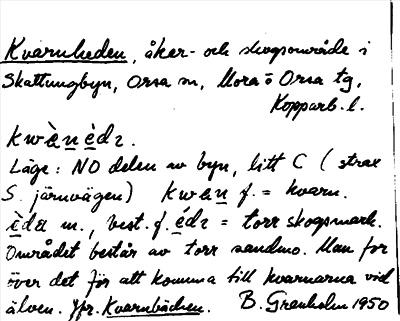 Kvarnheden, åker- och skogsområde i
Skattungbyn, Orsa sn, Mora o Orsa tg,
Kopparb. l.
kwὲnὲdɿ.
Läge: NO delen av byn, litt C (strax
S. järnvägen) kwan f. = kvarn.
ὲda m., best. f. édɿ = torr skogsmark.
Området består av torr sandmo. Man for
över det för att komma till kvarnarna vid
älven. Jfr. Kvarnbäcken. B. Granholm 1950